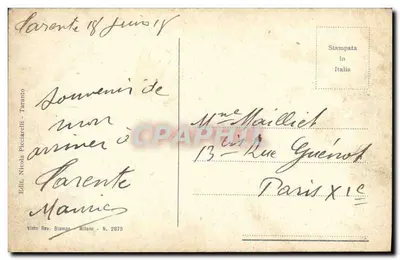 Tarente 18 Juin 18
Stampata
in
Italia
Souvenir de
mon
arrivée à
Tarente
Maurice
Mme Mailliet
13 bis Rue Guénot
Paris XIe
Edit. Nicola Picciarelli - Taranto
Visto Rev. Stampa - Milano - N. 2673
CPArama.com